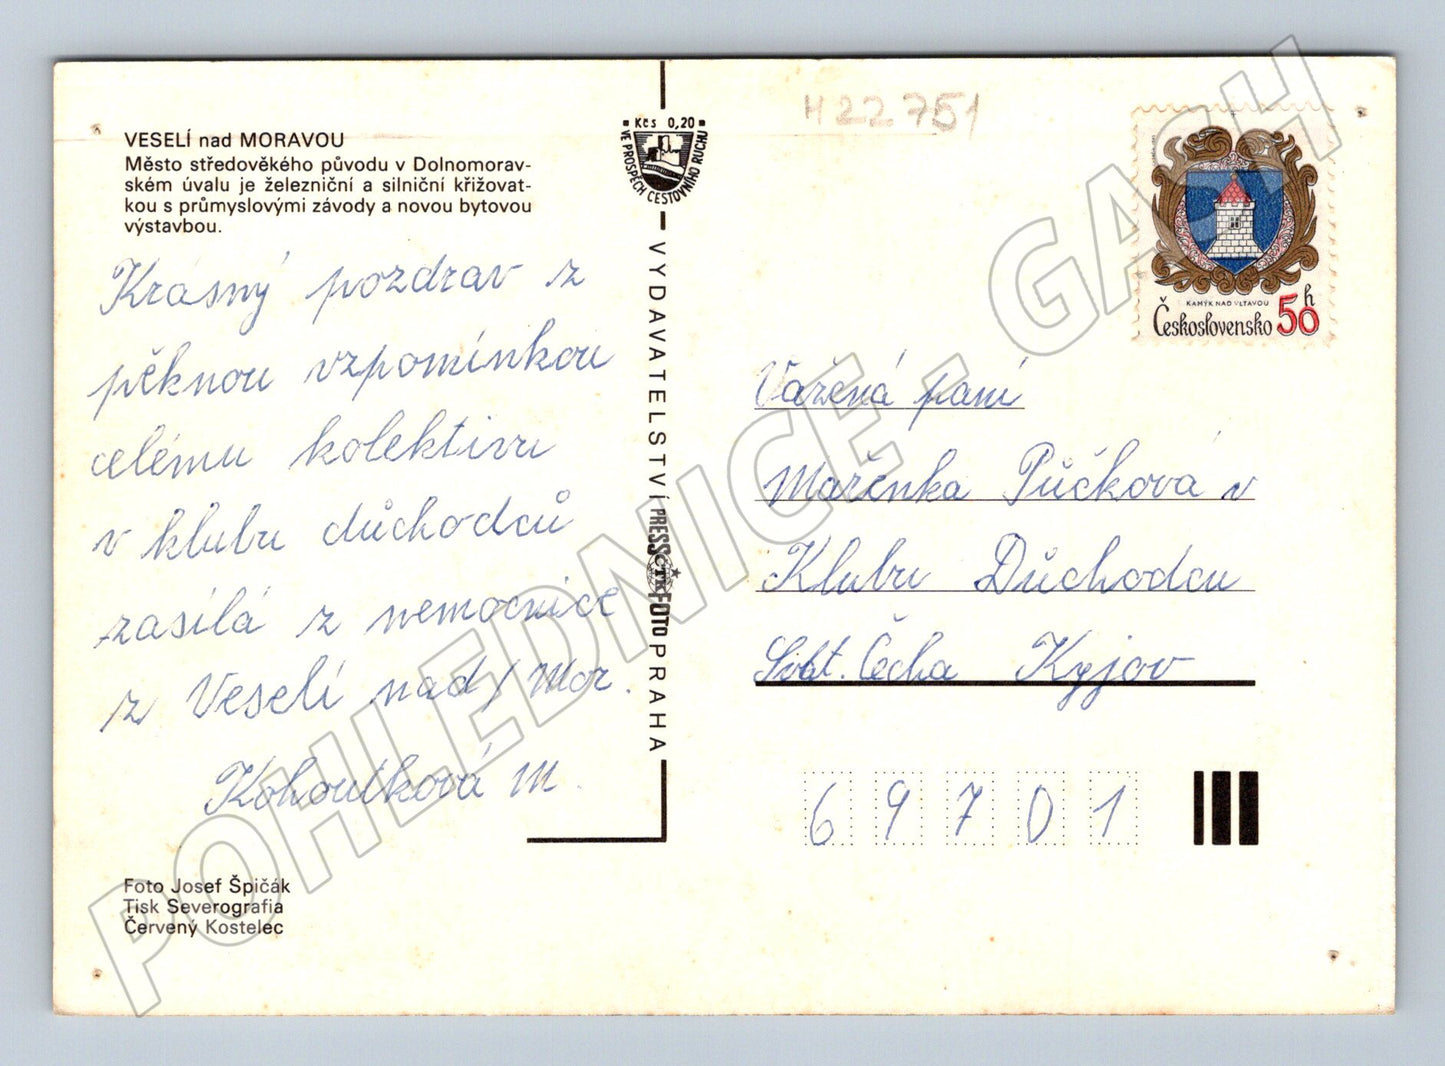 VESELÍ nad MORAVOU
Město středověkého původu v Dolnomorav-
ském úvalu je železniční a silniční křižovat-
kou s průmyslovými závody a novou bytovou
výstavbou.
Krásný pozdrav z
pěknou vzpomínkou
celému kolektivu
v klubu důchodců
zasílá z nemocnice
z Veselí nad/Mor.
Kohoutková M.
Foto Josef Špičák
Tisk Severografia
Červený Kostelec
Kčs 0,20
VE PROSPĚCH CESTOVNÍHO RUCHU
VYDAVATELSTVÍ PRESSFOTO PRAHA
ČTK
H22751
KAMÝK NAD VLTAVOU
Československo 50 h
Vážená paní
Mařenka Půčková v
Klubu Důchodcu
Svat. Čecha Kyjov
69701
POHLEDNICE - GASH